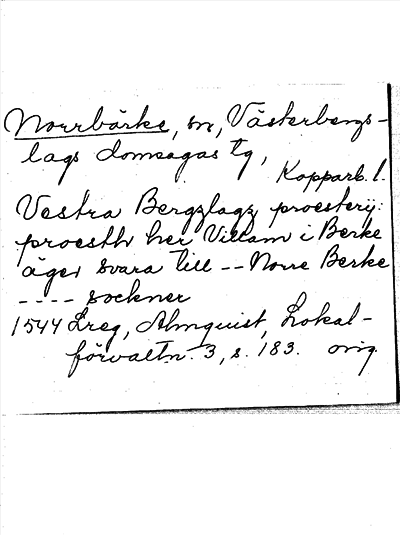 Norrbärke, sn, Västerbergs-
lags domsagas tg,
Kopparb. l.
Vestra Bergzlagz proesterij:
proesthr her Villam i Berke
äger svara till -- Norre Berke
---- sockner
1544 Lreg, Almquist, Lokal-
förvaltn. 3, s. 183. orig.